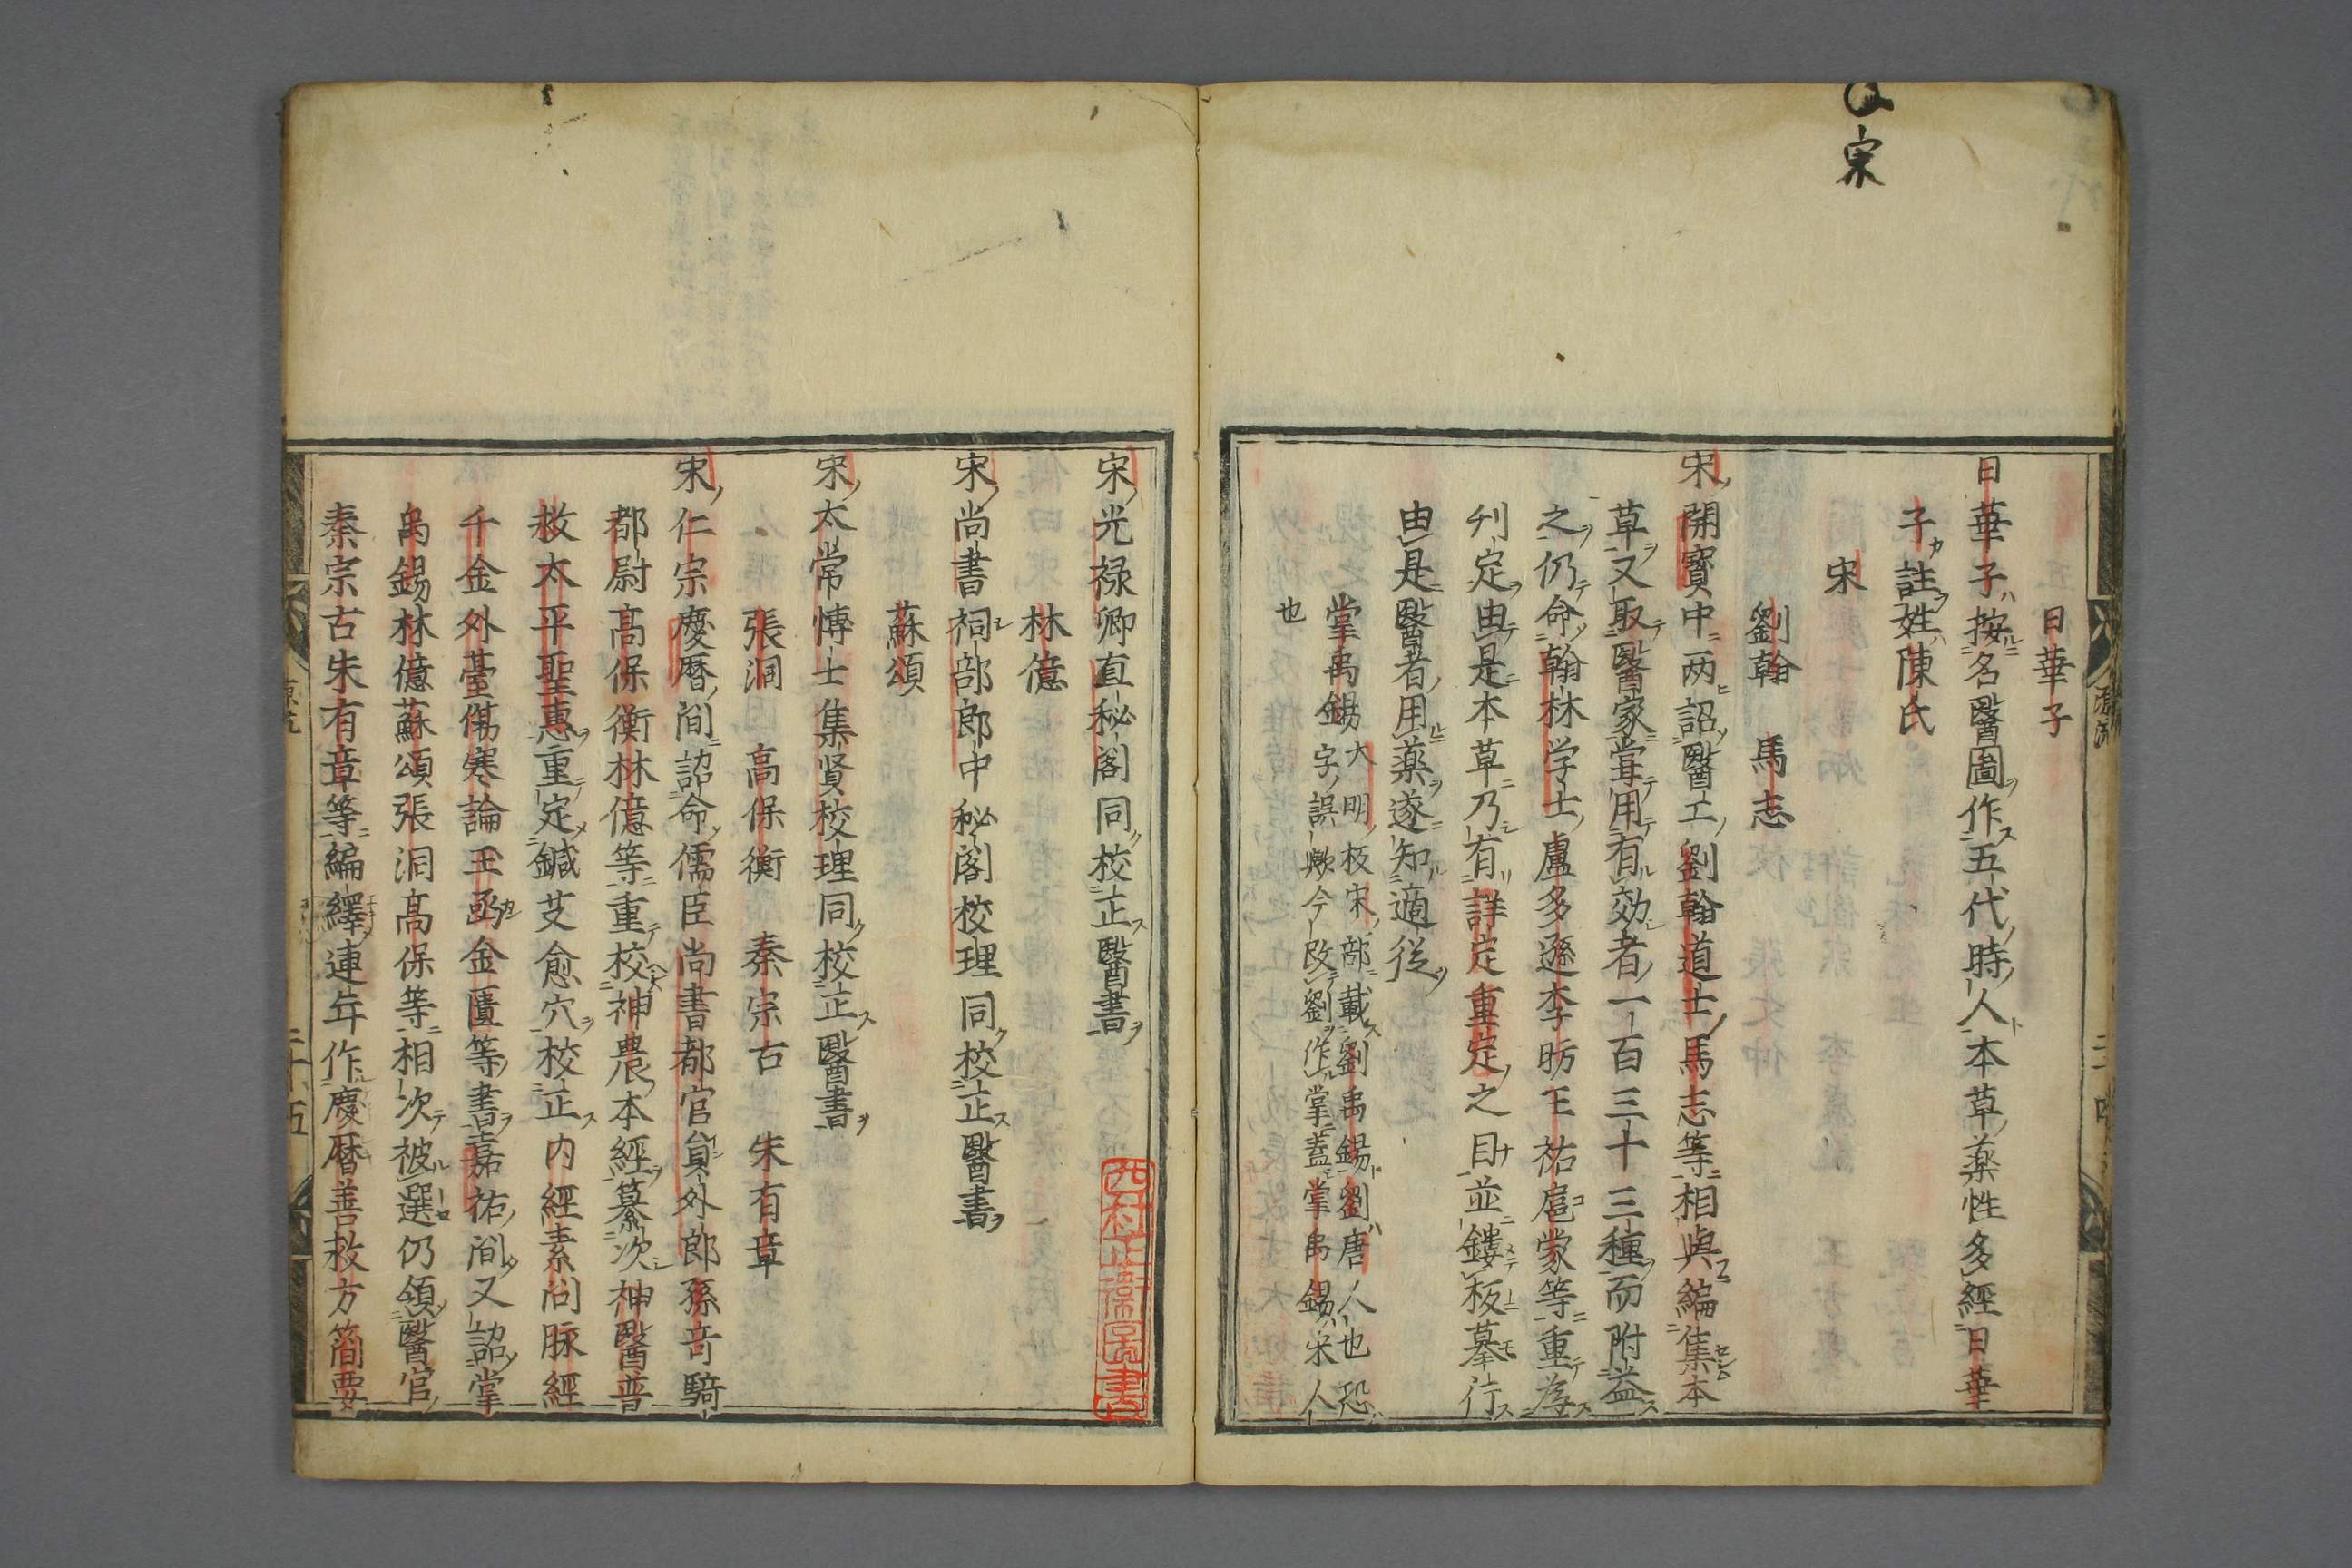 宗
日華子
日華子按名醫圖作五代時人本草藥性多經日華
子註姓陳氏
宋
劉翰　馬志
宋開寶中两詔醫工劉翰道士馬志等相與編集本
草又取醫家嘗用有効者一百三十三種而附益
之仍命翰林学士盧多遜李昉王祐扈蒙等重為
刋定由是本草乃有詳定重定之目並鏤板摹行
由是醫者用薬遂知適従
掌禹錫
大明板宋部載劉禹錫劉唐人也恐
字誤歟今改劉作掌蓋掌禹錫宋人
也
宋光禄卿直秘閣同校正醫書
林億
宋尚書祠部郎中秘閣校理同校正醫書
蘇頌
宋太常博士集贤校理同校正醫書
張洞　高保衡　秦宗古　朱有章
宋仁宗慶暦間詔命儒臣尚書都官貟外郎孫竒騎
都尉髙保衡林億等重校神農本經纂次神醫普
救太平聖惠重定鍼艾愈穴校正内經素問脉經
千金外臺傷寒論王函金匱等書嘉祐間又詔掌
禹錫林億蘇頌張洞髙保等相次被選仍領醫官
秦宗古朱有章等編繹連年作慶暦善救方簡要
二十五
西村正衛圖書